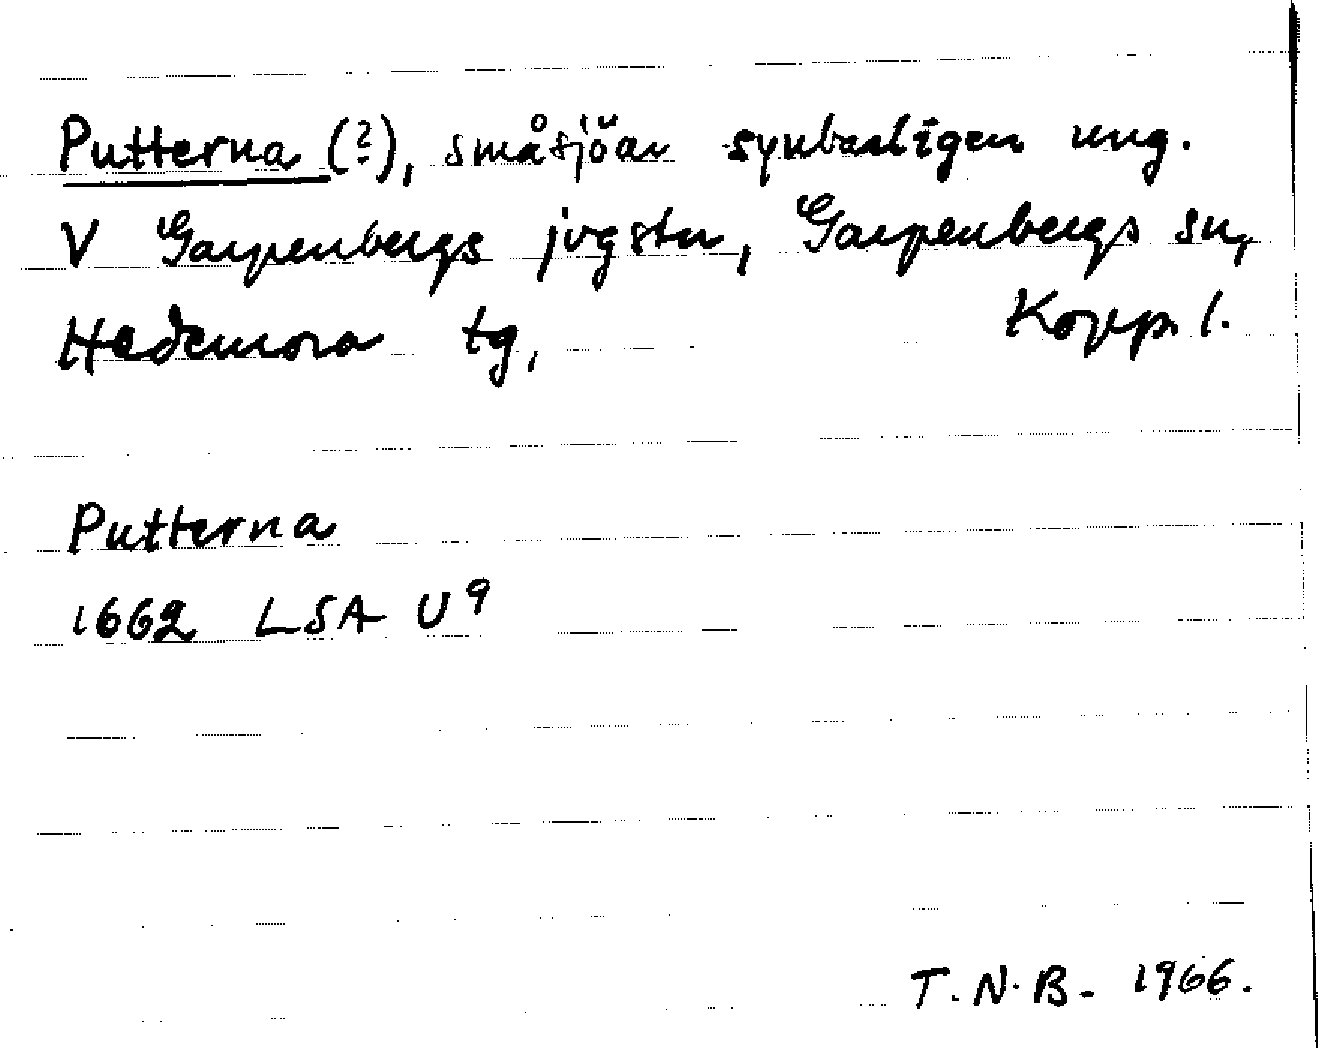 Putterna (?), småsjöar synbarligen ung.
V Garpenbergs jvgstn, Garpenbergs sn,
Hedemora tg, Kopp. l.
Putterna
1662 LSA U9
T.N.B. 1966.